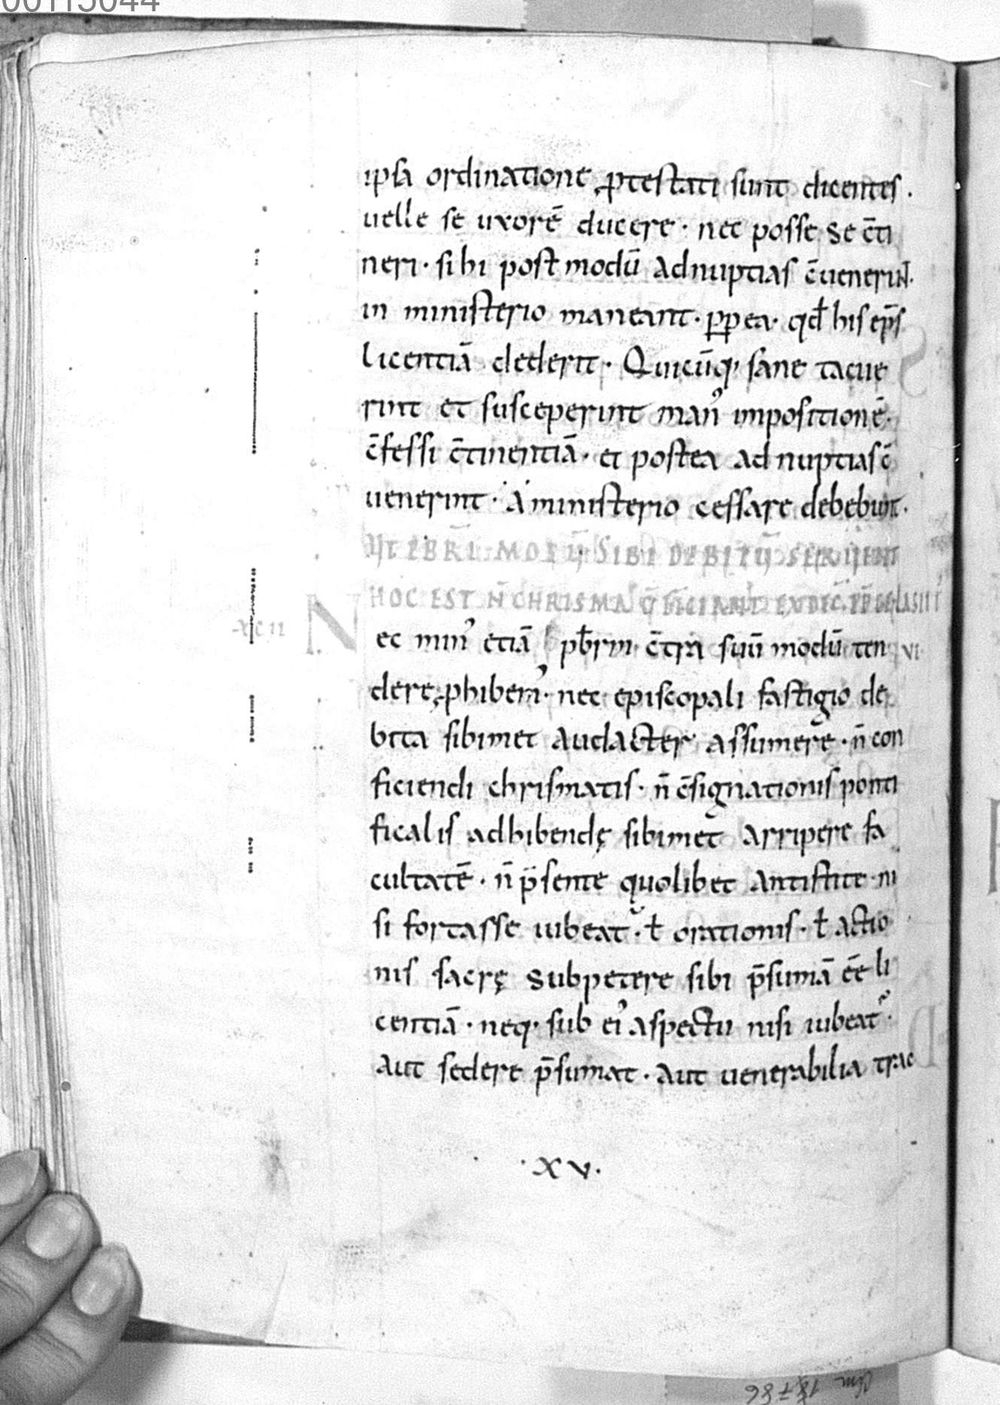 00115044
ipsa ordinatione ꝓtestati sunt dicentes.
uelle se uxorē ducere · nec posse se c̄ti
neri · si hi post modū ad nuptias c̄uenerint.
in ministerio maneant · ꝓpea · qđ his ep̄s
licentiā dederit · Quicūq; sane tacue
rint et susceperint man᾿ impositionē.
c̄fessi c̄tinentiā · et postea ad nuptias c̄
uenerint · a ministerio cessare debebunt.
UT P̄BRI MODŪ SIBI DEBITŪ SERUENT
HOC EST N̄ CHRISMA
xcii
Nec min᾿ etiā pb̄rm̄ · c̄tra suū modū ten
dere ꝓhibem᾿ · nec episcopali fastigio de
bita sibimet audacter assumere · n̄ con
ficiendi chrismatis · n̄ c̄signationis ponti
ficalis adhibendę sibimet arripere fa
cultatē · n̄ p̄sente quolibet antistite · ni
si fortasse iubeat᾿ · ł orationis · ł actio
nis sacrę subpetere sibi p̄sumā ēē li
centiā · neq; sub ei᾿ aspectu nisi iubeat᾿ ·
aut sedere p̄sumat · aut uenerabilia trac
· xv ·